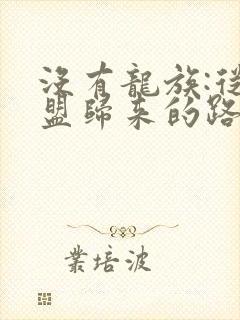 沒有龍族:從
盟歸來的路
業培波